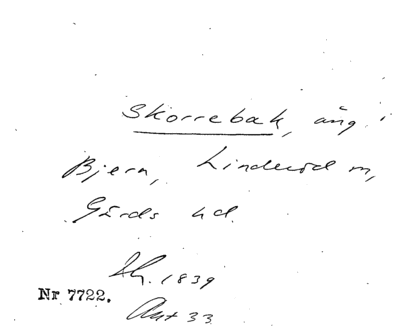 Skorrebak, äng i
Bjern, Linderöd sn,
Gärds hd.
Shg. 1839
Nr 7722.
Akt 33